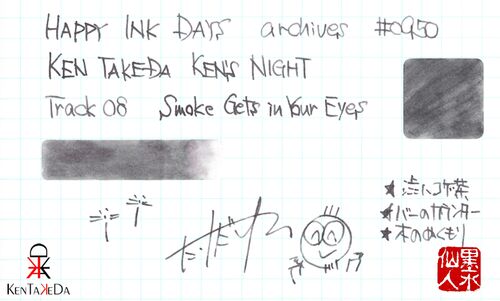 HAPPY INK DAYS archives #0950
KEN TAKEDA KEN'S NIGHT
Track 08 Smoke Gets in Your Eyes
★渋いコゲ茶
★バーのカウンター
★木のぬくもり
KENTAKEDA